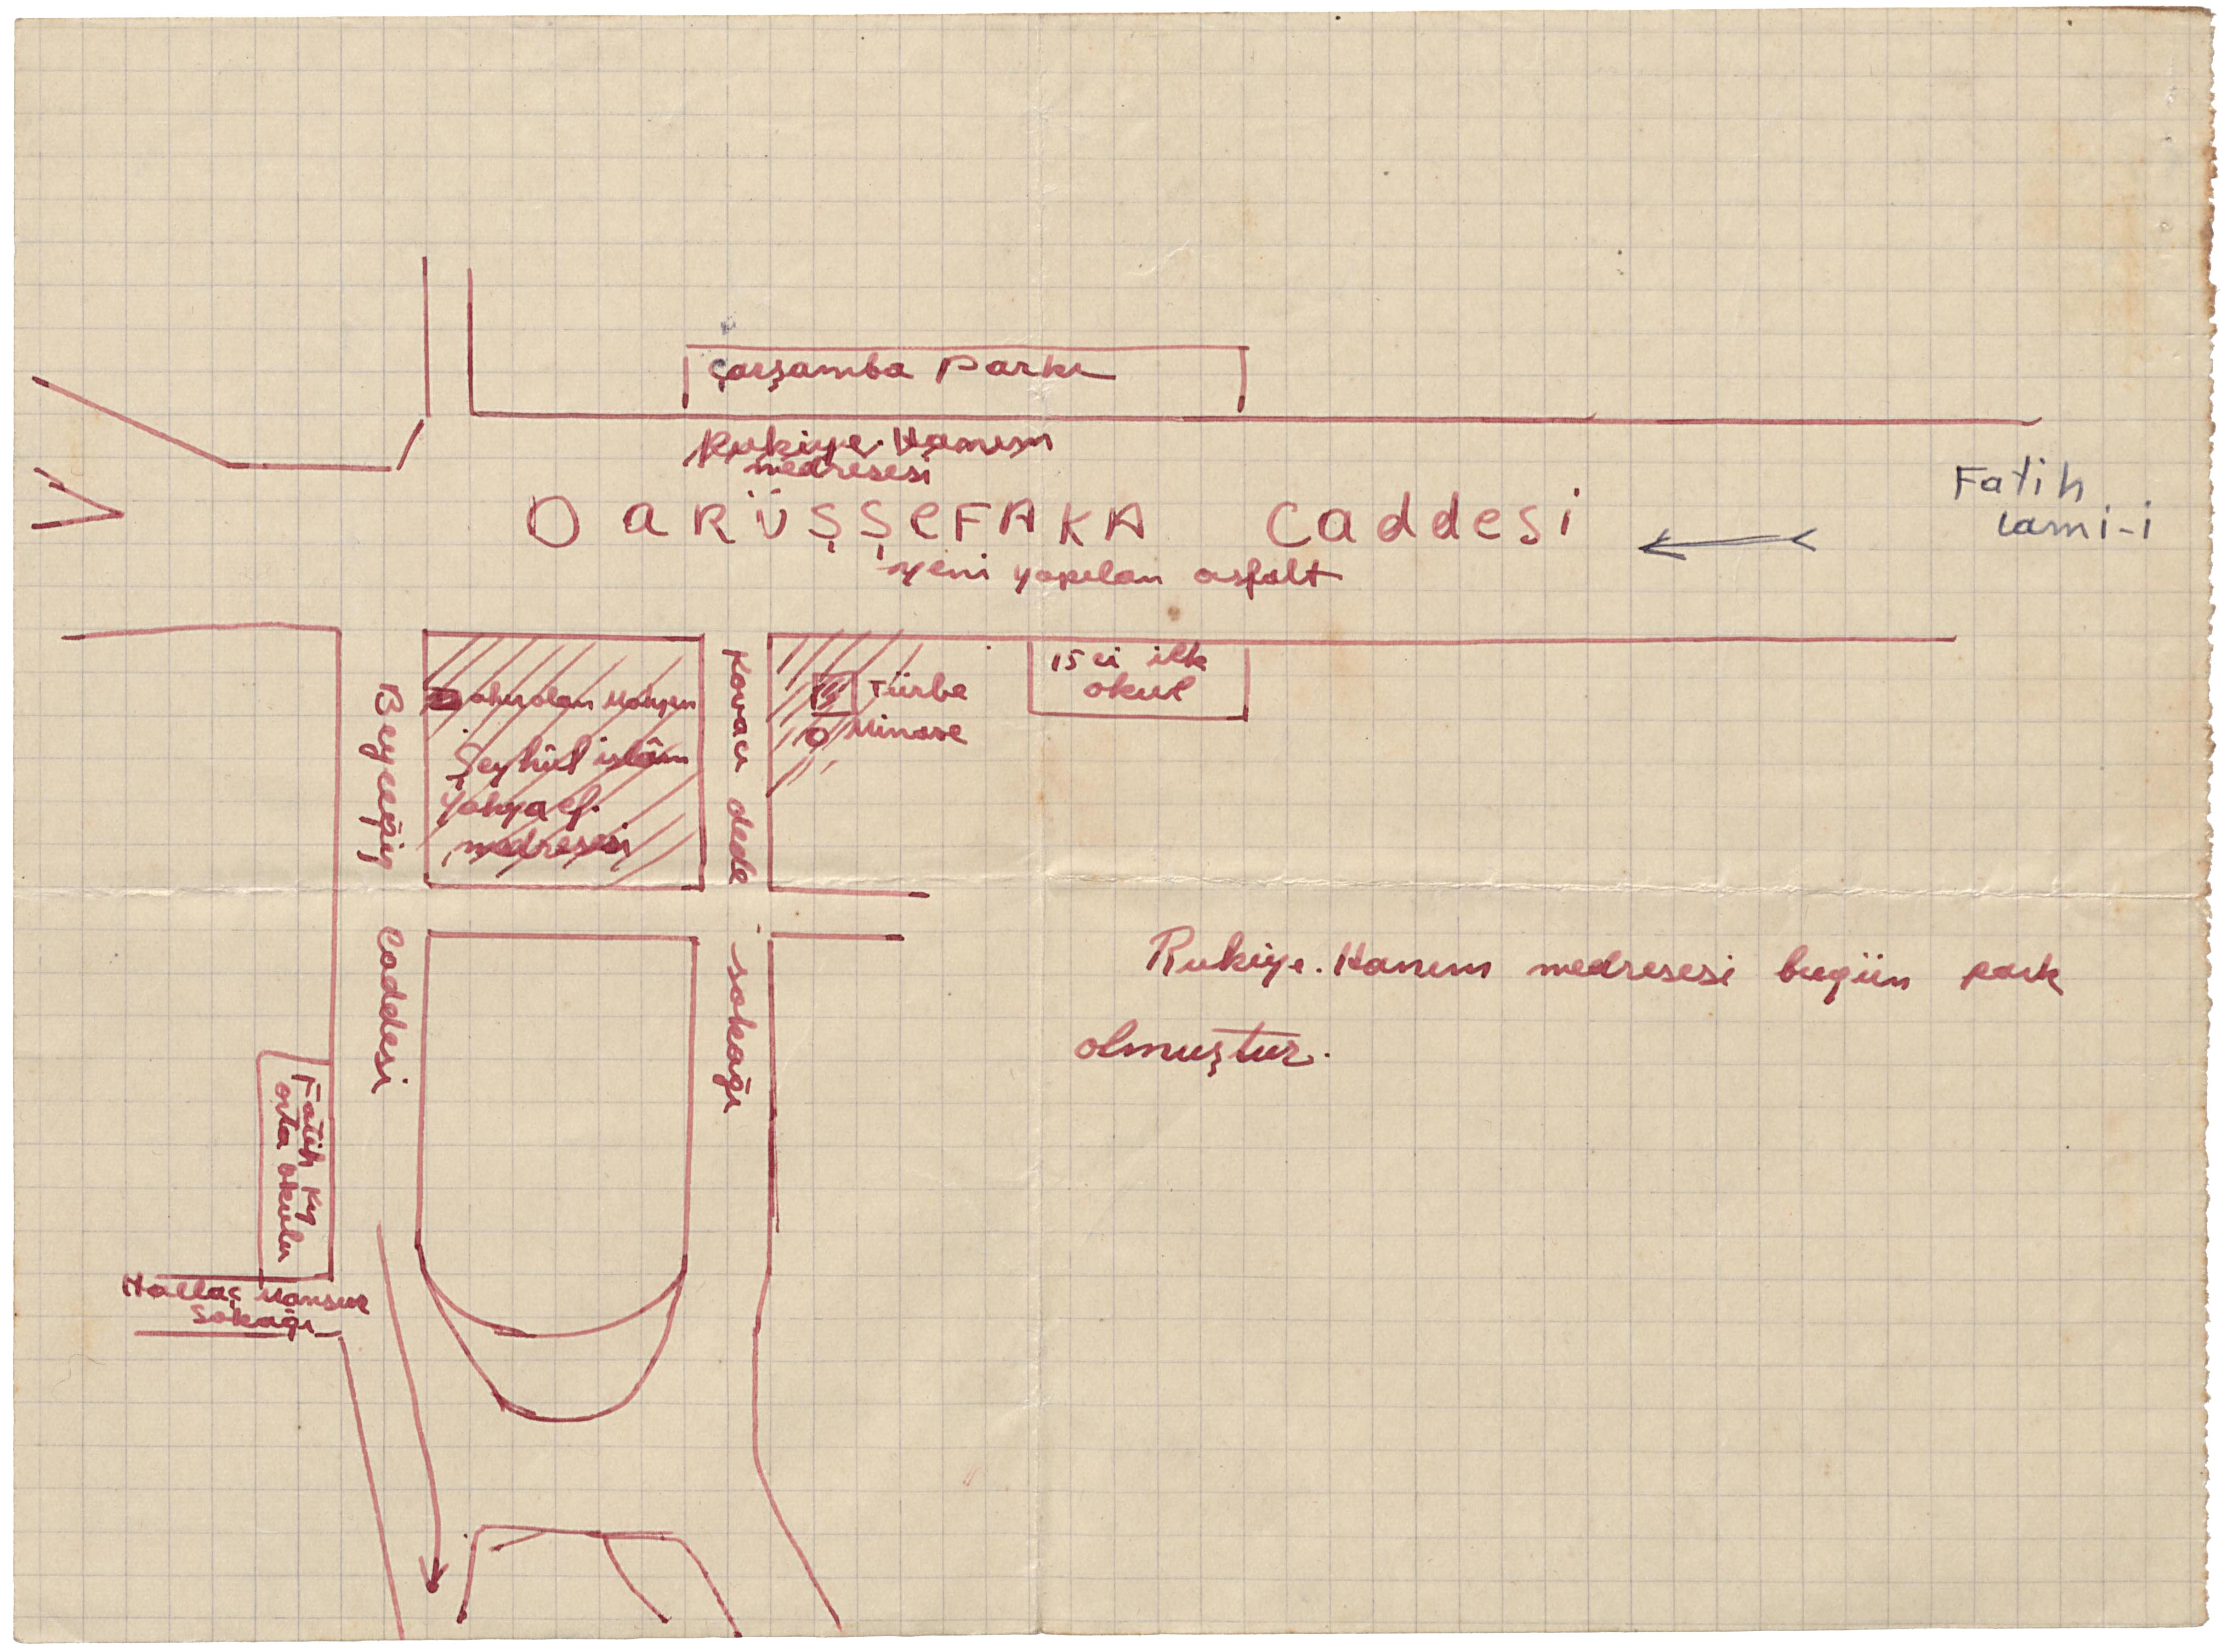 Çarşamba Parkı
Rukiye. Hanım
medresesi
DARÜŞŞEFAKA Caddesi
yeni yapılan asfalt
Fatih
Cami-i
Beyceğiz Caddesi
olan
Şeyhül islâm
Yahya ef.
medresesi
Kovacı dede sokağı
Türbe
Minare
15 ci ilk
okul
Rukiye. Hanım medresesi bugün park
olmuştur.
Fatih Kız
orta okulu
Hallaç Mansur
Sokağı